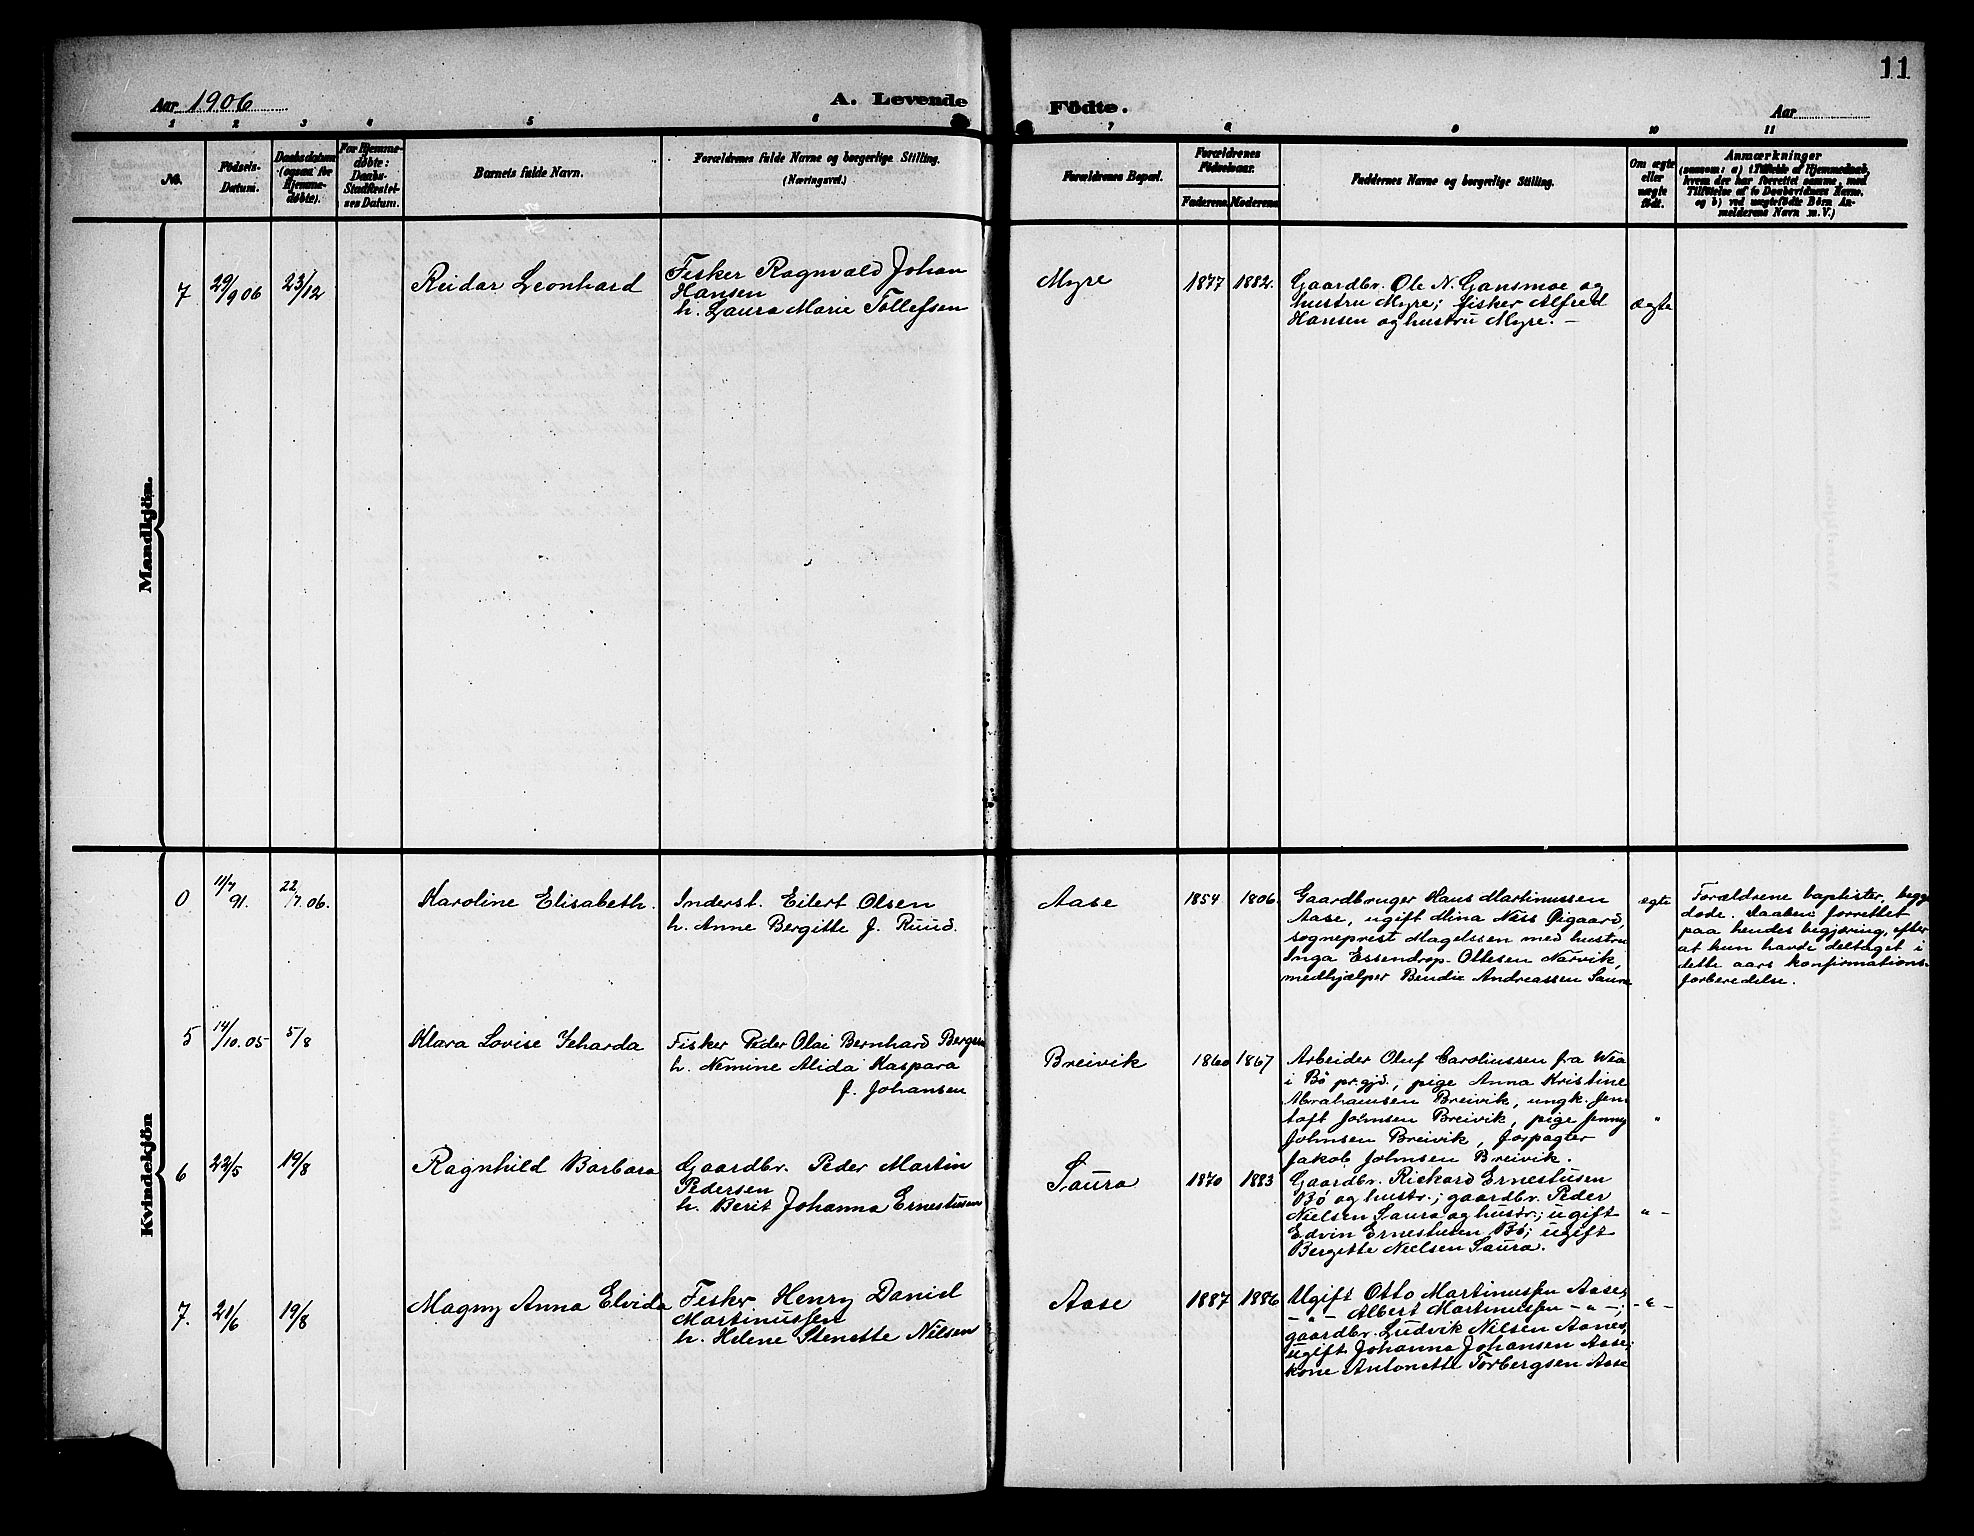 11
Aar 1906
A. Levende Födte.
Aar
1 2 3 4 5 6 7 8 9 10 11
No.
Födsels-
Datum.
Daabsdatum
(ogsaa for
Hjemme-
döbte).
For Hjemme-
döbte:
Daabs-
Stadfæstel-
ses Datum.
Barnets fulde Navn.
Forældrenes fulde Navne og borgerlige Stilling.
(Næringsvei.)
Forældrenes Bopæl.
Forældrenes
Födselsaar.
Faderens. Moderens.
Faddernes Navne og borgerlige Stilling.
Om ægte
eller
uægte
födt.
Anmærkninger
(saasom: a) i Tilfælde af Hjemmedaab,
hvem der har forrettet samme, med
Tilföielse af to Daabsvidners Navne.
og b) ved uægtefödte Börn An-
melderens Navn m. V.)
Mandkjön.
7
29/9 06
23/12
Reidar Leonhard
Fisker Ragnvald Johan
Hansen
h. Laura Marie Tollefsen
Myre
1877
1882.
Gaardbr. Ole N. Gansmoe og
hustru Myre; fisker Alfred
Hansen og hustru Myre. –
ægte
Kvindekjön
0
11/7 91.
22/7 06.
Karoline Elisabeth.
Inderst. Eilert Olsen
h. Anne Bergitte f. Ruud.
Aase
1854
1806.
Gaardbruger Hans Martinussen
Aase, ugift Mina Næss Øigaard,
sogneprest Magelssen med hustru
Inga Essendrop-Ottesen Narvik,
medhjælper Bendix Andreassen Saura
ægte
Forældrene baptister, begge
døde. Daaben forrettet
paa hendes begjæring, efter
at hun havde deltaget i
dette aars konfirmations-
forberedelse.
5
14/10. 05
5/8
Klara Lovise Jeharda
Fisker Peder Olai Bernhard Bergsen
h. Nemine Alida Kaspara
f. Johansen
Breivik
1860
1867
Arbeider Oluf Caroliussen fra Wea
i Bø pr.gjd.; pige Anna Kristine
Abrahamsen Breivik, ungk. Jen
toft Johnsen Breivik, pige Jenny
Johnsen Breivik, forpagter
Jakob Johnsen Breivik.
"
6
22/5
19/8
Ragnhild Barbara
Gaardbr. Peder Martin
Pedersen
h. Berit Johanna Ernestusen
Saura
1870
1883
Gaardbr. Rickard Ernestusen
Bø og hustr.; gaardbr. Peder
Nielsen Saura og hustr.; ugift
Edvin Ernestusen Bø; ugift
Bergitte Nielsen Saura.
" -
7.
21/6
19/8
Magny Anna Elvida
Fisker Henry Daniel
Martinussen
h. Helene Stenette Nilsen
Aase
1887
1886
Ugift Otto Martinussen Aase,
– " – Albert Martinussen – " –;
gaardbr. Ludvik Nilsen Aanes,
ugift Johanna Johansen Aase;
kone Antonette Torbergsen Aase
- " -